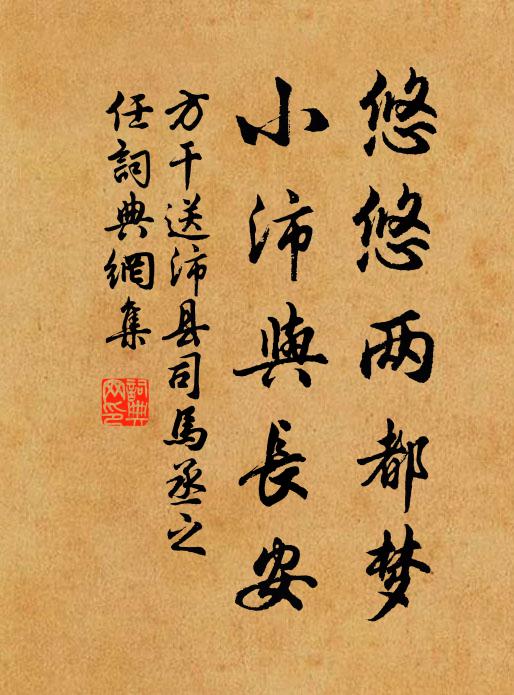 悠悠两都梦
小沛與長安
方干送沛县司馬丞之
任詞典網集
詞典網印